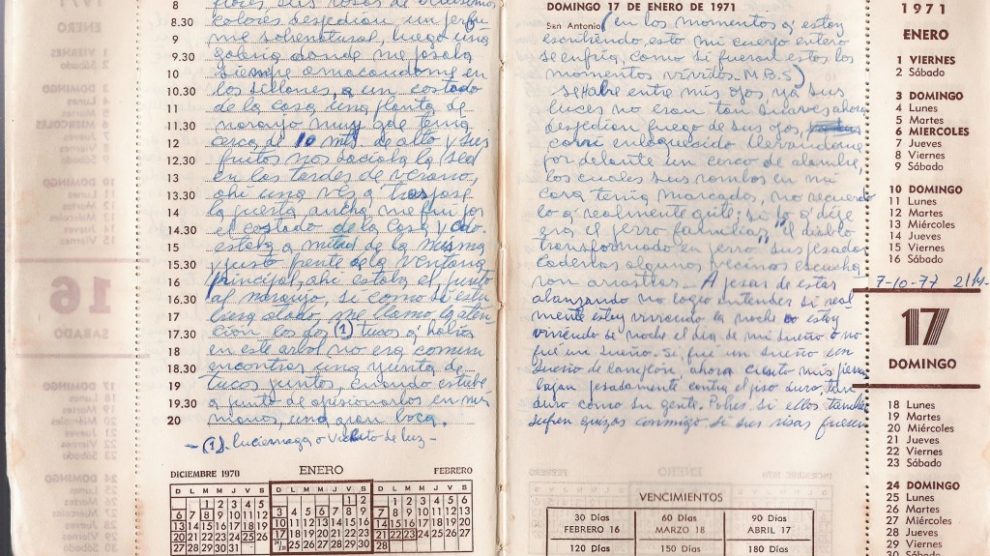 8 flores, sus rosas de
8.30 colores despedian un perfu
9 me sobrenatural, luego una
9.30 galeria donde me posaba
10 siempre amacandome en
10.30 los sillones, a un costado
11 de la casa una planta de
11.30 naranjo muy gde tenia
12 cerca de 10 mts de alto y sus
12.30 frutos nos saciaba la sed
13 en las tardes de verano,
13.30 ahi una ves q traspase
14 la puerta ancha me fui por
14.30 el costado de la casa y cdo
15 estaba a mitad de la misma
15.30 y justo frente de la ventana
16 principal, ahi estaba el junto
16.30 al naranjo, si como si estu
17 biera atado, me llamo la aten
17.30 cion los dos (1) tucos q habia
18 en este arbol no era comun
18.30 encontrar una yunta de
19 tucos juntos, cuando estube
19.30 a punto de apresionarlos en mis
20 manos, una gran boca
- (1). luciernaga o Vichito de luz -
DICIEMBRE 1970 ENERO FEBRERO
D L M M J V S
1 2 3 4 5
6 7 8 9 10 11 12
13 14 15 16 17 18 19
20 21 22 23 24 25 26
27 28 29 30 31
D L M M J V S
1 2
3 4 5 6 7 8 9
10 11 12 13 14 15 16
D L M M J V S
DOMINGO 17 DE ENERO DE 1971
San Antonio
(en los momentos q estoy
escribiendo, esto mi cuerpo entero
se enfria, como si fueran estos los
momentos vividos. M.B.S)
se habre entre mis ojos ya sus
luces no eran tan suaves ahora
despedian fuego de sus ojos,
corri enloquecido llevandome
por delante un cerco de alambre,
los cuales sus rombos en mi
cara tenia marcados, no recuerdo
lo q realmente grite: si fo q dije
era el perro familiar, "el diablo
transformado en perro" sus pesadas
cadenas algunos vecinos escucha
ron arrastrar - A pesar de estar
alanzando no logro entender si real
mente estoy viviendo la noche o estoy
viviendo se noche el dia de mi sueño o no
fue un sueño. Si fue un sueño
sueño de, ahora ciento mis pier
bajan pesadamente contra el piso duro, tan
duro como su gente. Pobres si ellos tambien
sufren quizas conmigo si sus risas fueran
VENCIMIENTOS
30 Días 60 Días 90 Días
FEBRERO 16 MARZO 18 ABRIL 17
120 Días 150 Días 180 Días
1971
ENERO
1 VIERNES
2 Sábado
3 DOMINGO
4 Lunes
5 Martes
6 MIERCOLES
7 Jueves
8 Viernes
9 Sábado
10 DOMINGO
11 Lunes
12 Martes
13 Miércoles
14 Jueves
15 Viernes
16 Sábado
7-10-77 21 h.
17
DOMINGO
18 Lunes
19 Martes
20 Miércoles
21 Jueves
22 Viernes
23 Sábado
24 DOMINGO
25 Lunes
26 Martes
27 Miércoles
28 Jueves
29 Viernes
30 Sábado